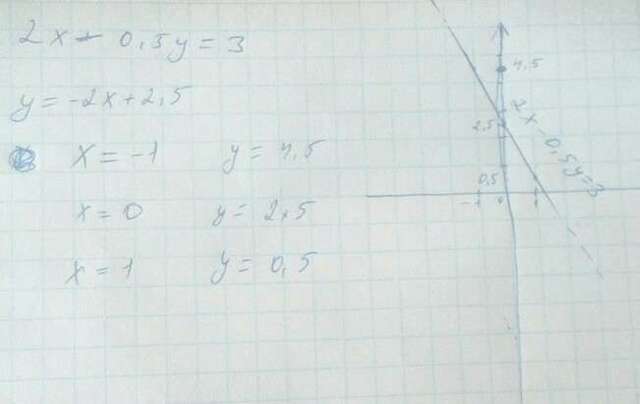 2x - 0,5y = 3
y = -2x + 2,5
x = -1 y = 4,5
x = 0 y = 2,5
x = 1 y = 0,5
4,5
2,5
0,5
-1
1
2x - 0,5y = 3